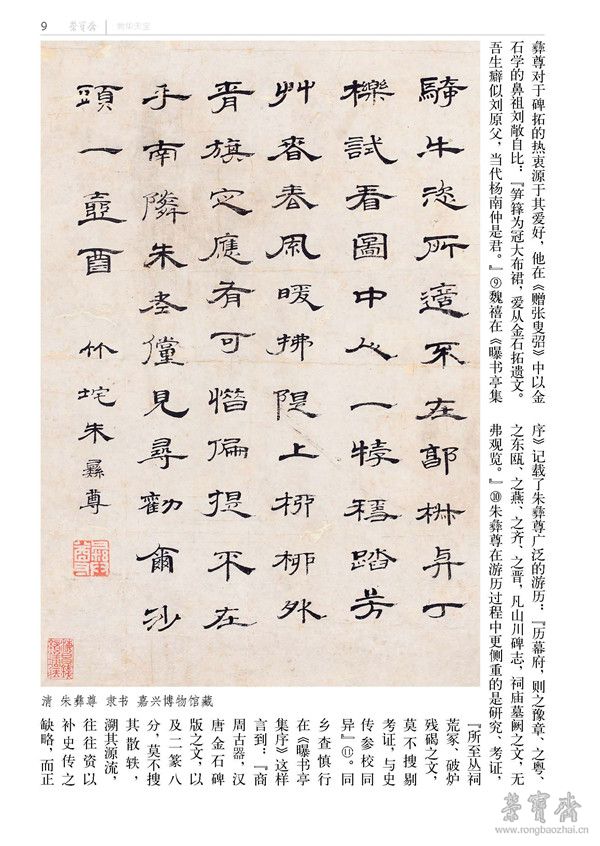 9 榮寶齋 物华天宝
騎牛恣所適不在郭椒与丁
櫟試看圖中人一犢穩踏芳
艸春春風暖拂隄上栁栁外
青旗定應有可惜偏提不在
手南隣朱老儻見尋勸爾沙
頭一壺酉 竹垞朱彝尊
清 朱彝尊 隶书 嘉兴博物馆藏
彝尊对于碑拓的热衷源于其爱好，他在《赠张叟弨》中以金
石学的鼻祖刘敞自比：『笋箨为冠大布裙，爱从金石拓遗文。
吾生癖似刘原父，当代杨南仲是君。』⑨魏禧在《曝书亭集
序》记载了朱彝尊广泛的游历：『历幕府，则之豫章、之粤、
之东瓯、之燕、之齐、之晋，凡山川碑志，祠庙墓阙之文，无
弗观览。』⑩朱彝尊在游历过程中更侧重的是研究、考证，
『所至丛祠
荒冢、破炉
残碣之文，
莫不搜剔
考证，与史
传参校同
异』⑪。同
乡查慎行
在《曝书亭
集序》这样
言到：『商
周古器，汉
唐金石碑
版之文，以
及二篆八
分，莫不搜
其散轶，
溯其源流，
往往资以
补史传之
缺略，而正
榮寶齋
www.rongbaozhai.cn